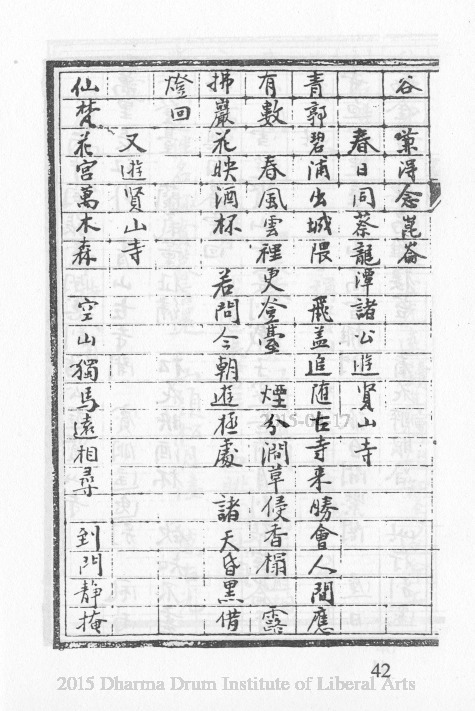 谷　縈得念崑崙
春日同蔡龍潭諸公遊賢山寺
青郭碧浦出城隈　飛盖追随古寺来勝會人間應
有數　春風雲裡更登臺　煙分澗草侵香榻　露
拂巖花映酒杯　若問今朝遊極處　諸天昏黑借
燈回
又遊賢山寺
仙梵花宮萬木森　空山獨馬遠相尋　到門靜掩
42
2015 Dharma Drum Institute of Liberal Arts